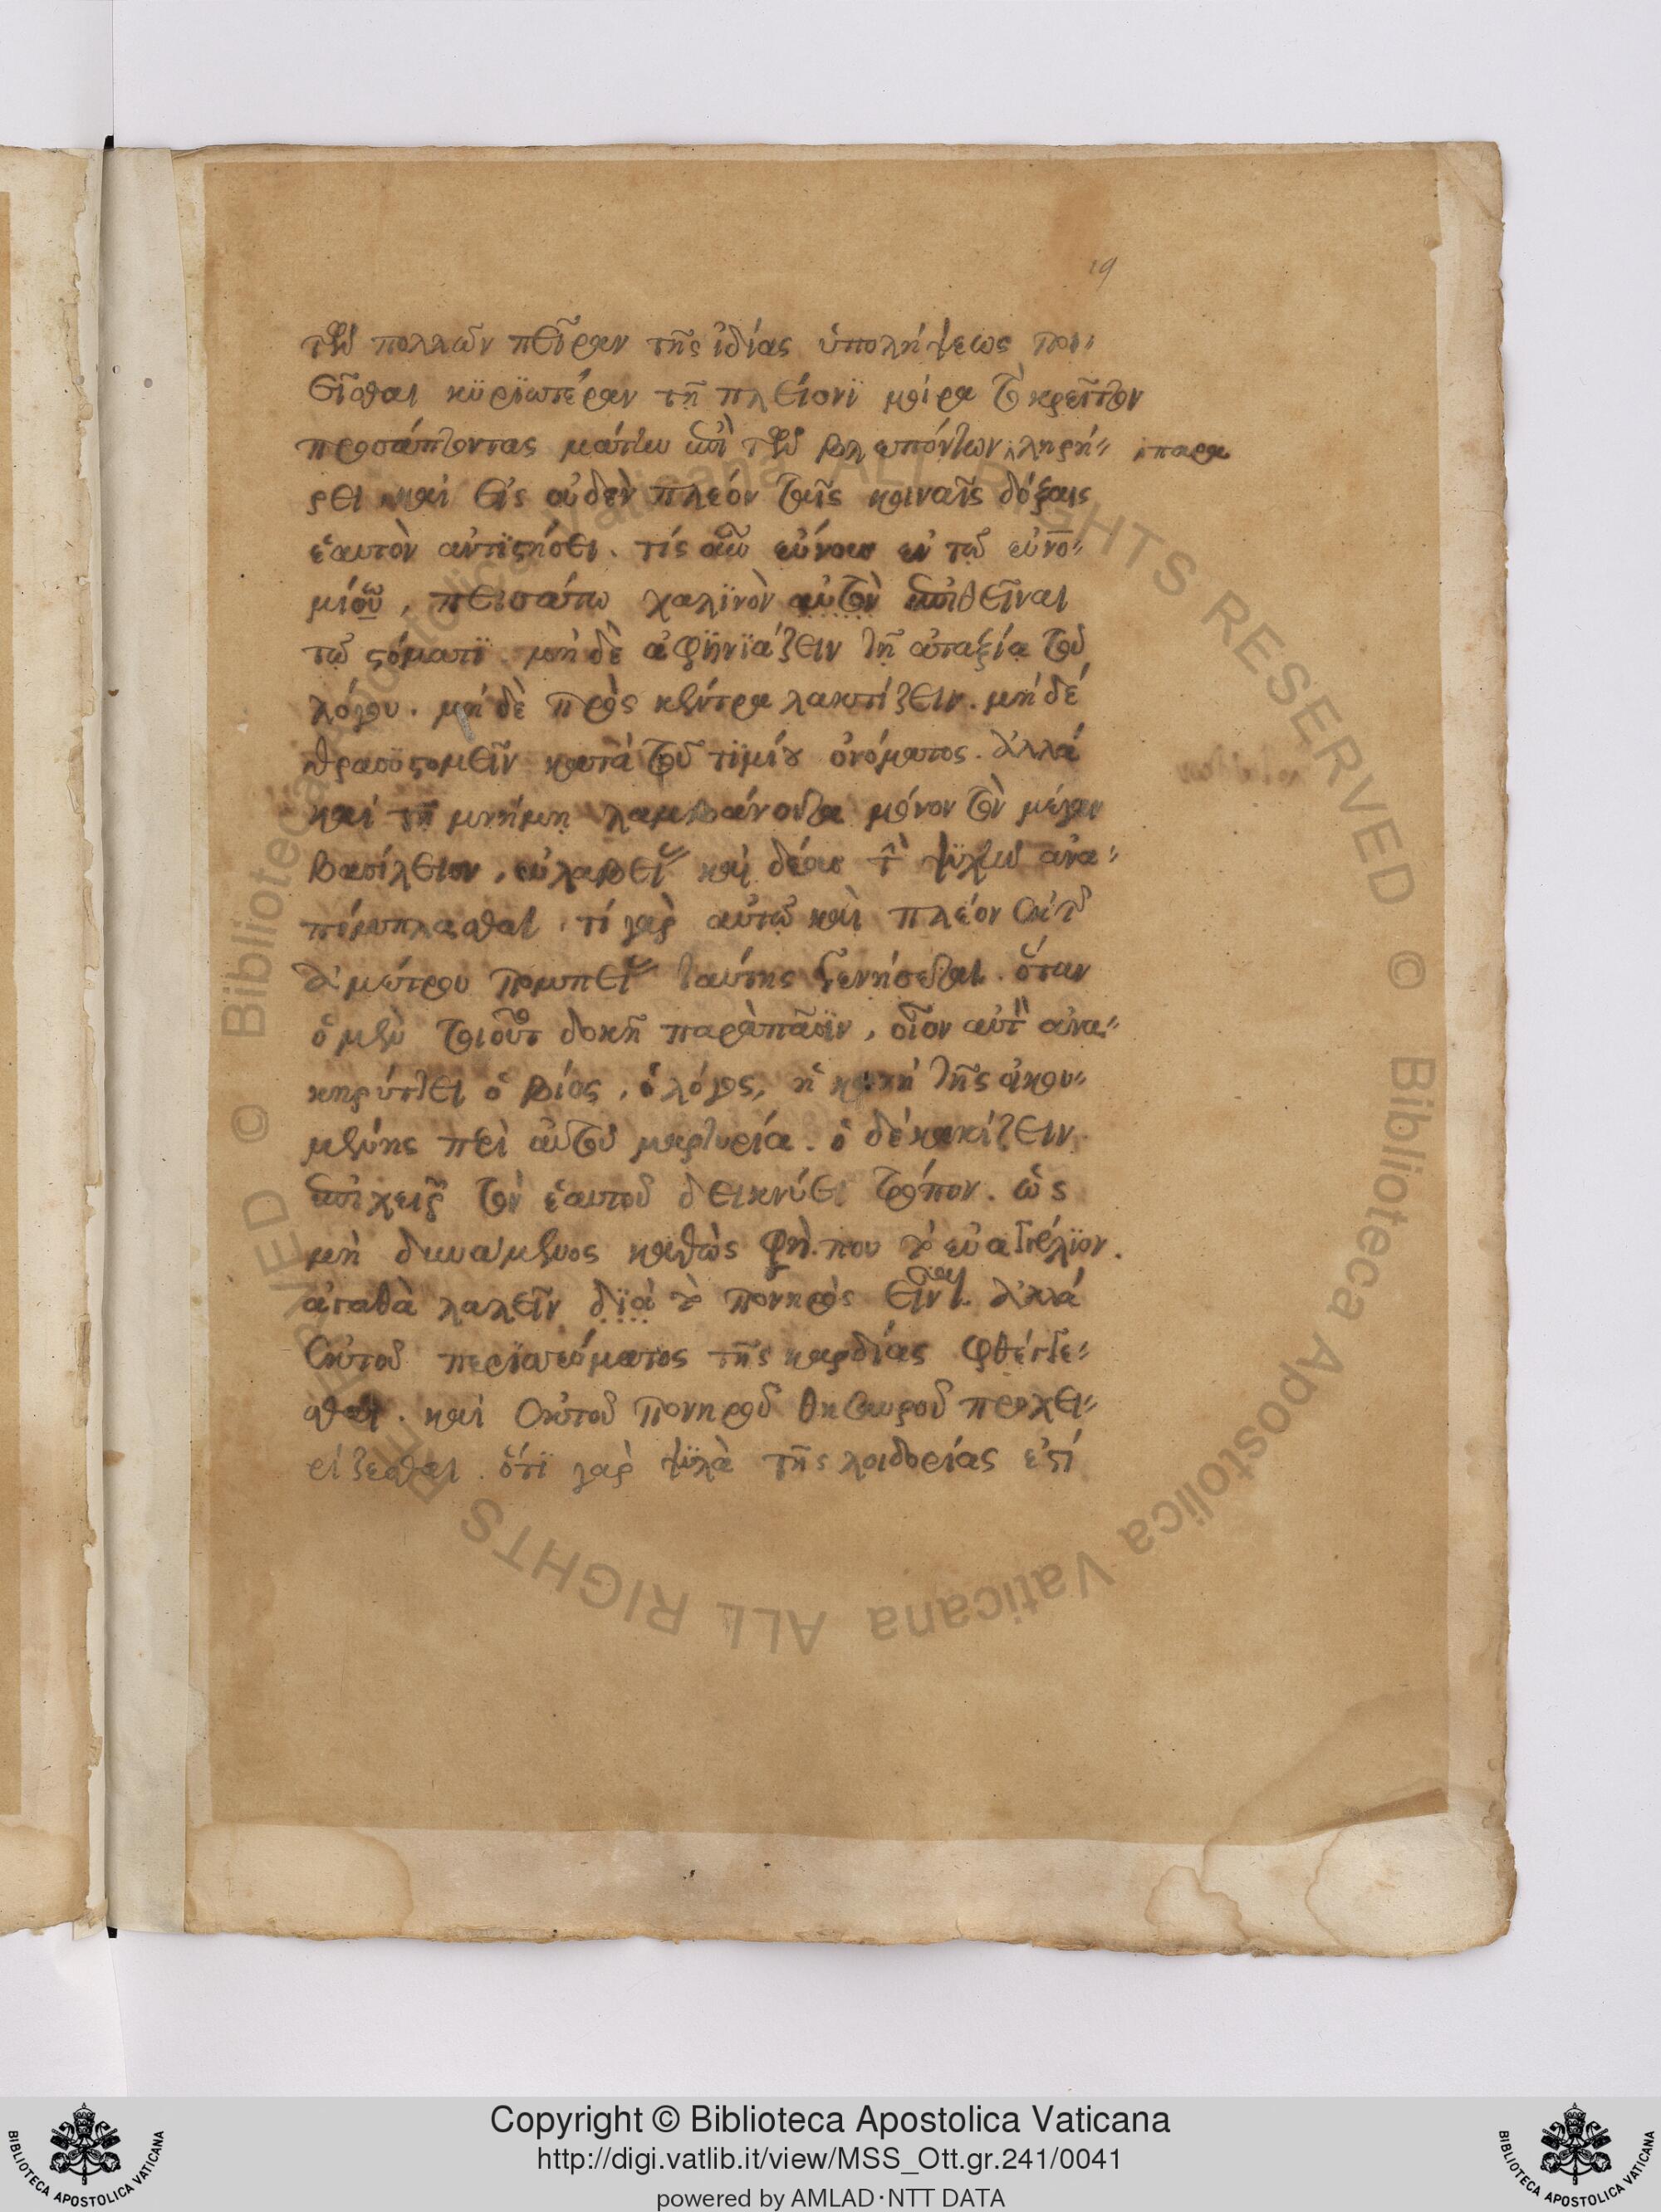 19
τῶν πολλῶν πεῖραν τῆς ἰδίας ὑπολήψεως ποι-
εῖσθαι κϋρϊωτέραν τῆ πλείονϊ μοίρα τὸ κρεῖττον
προσάπτοντας μάτην ἐπὶ τῶν βλεπόντων ληρή-
παρα
ρει καὶ εἰς οὐδὲν πλεόν ταῖς κοιναῖς δόξαις
ἑαυτὸν ἀντϊστήσει. τίς οὖν εὔνους ἐν τῶ εὐνο-
μίου, πεισάτω χαλϊνὸν αὐτὸν ἐπιθεῖναι
τῶ στόματϊ μηδὲ ἀφϋνϊάζειν τῆ ἀταξία τοῦ
λόγου. μηδὲ πρὸς κέντρα λακτίζειν. μηδέ
θρασϋστομεῖν κατὰ τοῦ τϊμίου ὀνόματος. ἀλλά
καὶ τῆ μνήμη λαμβάνοντα μόνον τὸν μέγαν
Βασίλειον, εὐλαβείας καὶ δέους τὴν ψϋχὴν ἀνα-
πίμπλασθαι. τί γὰρ αὐτῶ καὶ πλέον ἐκ τῆς
ἀμέτρου πομπείας ταύτης γενήσεται. ὅταν
ὁ μὲν τοιοῦτος δοκῆ παρὰ πᾶσϊν, οἷον αὐτὸν ἀνα-
κηρύττει ὁ βίος, ὁ λόγος, ἡ κοινὴ τῆς οἰκου-
μένης περὶ αὐτοῦ μαρτυρία. ὁ δὲ κακίζειν
ἐπιχειρῶν τὸν ἑαυτοῦ δεικνύει τρόπον. ὡς
μὴ δυνάμενος καθώς φησίν που τὸ εὐαγγέλϊον.
ἀγαθὰ λαλεῖν δϊὰ τὸ πονηρὸς εἶναι. ἀλλά
ἐκ τοῦ περϊσσεύματος τῆς καρδίας φθέγγε-
σθαι. καὶ ἐκ τοῦ πονηροῦ θησαυροῦ προχει-
ρίζεσθαι. ὅτϊ γὰρ ψϊλὰ τῆς λοιδορίας ἐστί
Copyright © Biblioteca Apostolica Vaticana
http://digi.vatlib.it/view/MSS_Ott.gr.241/0041
powered by AMLAD·NTT DATA